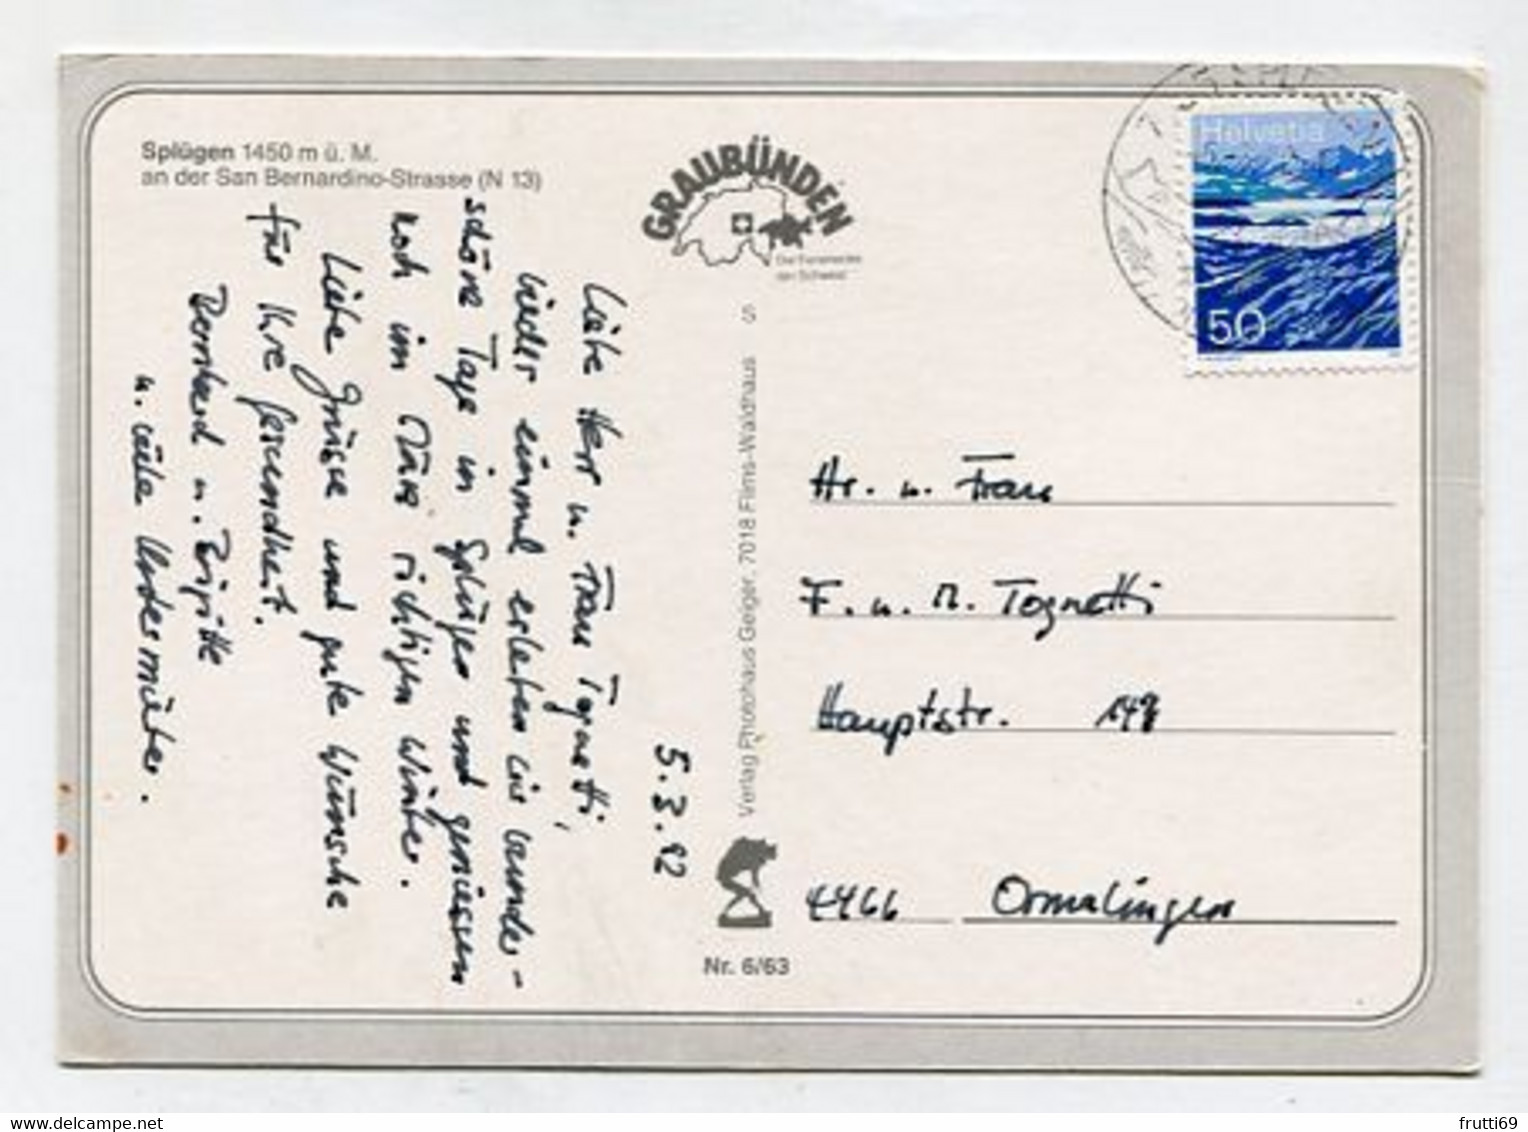 Splügen 1450 m ü. M.
an der San Bernardino-Strasse (N 13)
GRAUBÜNDEN
Die Ferienecke
der Schweiz
Helvetia
50
5.3.92
Liebe Herr u. Frau Tognetti,
Wieder einmal erleben wir wunder-
schöne Tage in Splügen und geniessen
noch im März richtigen Winter.
Liebe Grüsse und gute Wünsche
für Ihre Gesundheit.
Bernhard u. Brigitte
u. Käthe
S
Verlag Photohaus Geiger, 7018 Flims-Waldhaus
Nr. 6/63
Hr. u. Frau
F. u. M. Tognetti
Hauptstr. 148
4466 Ormalingen
frutti69